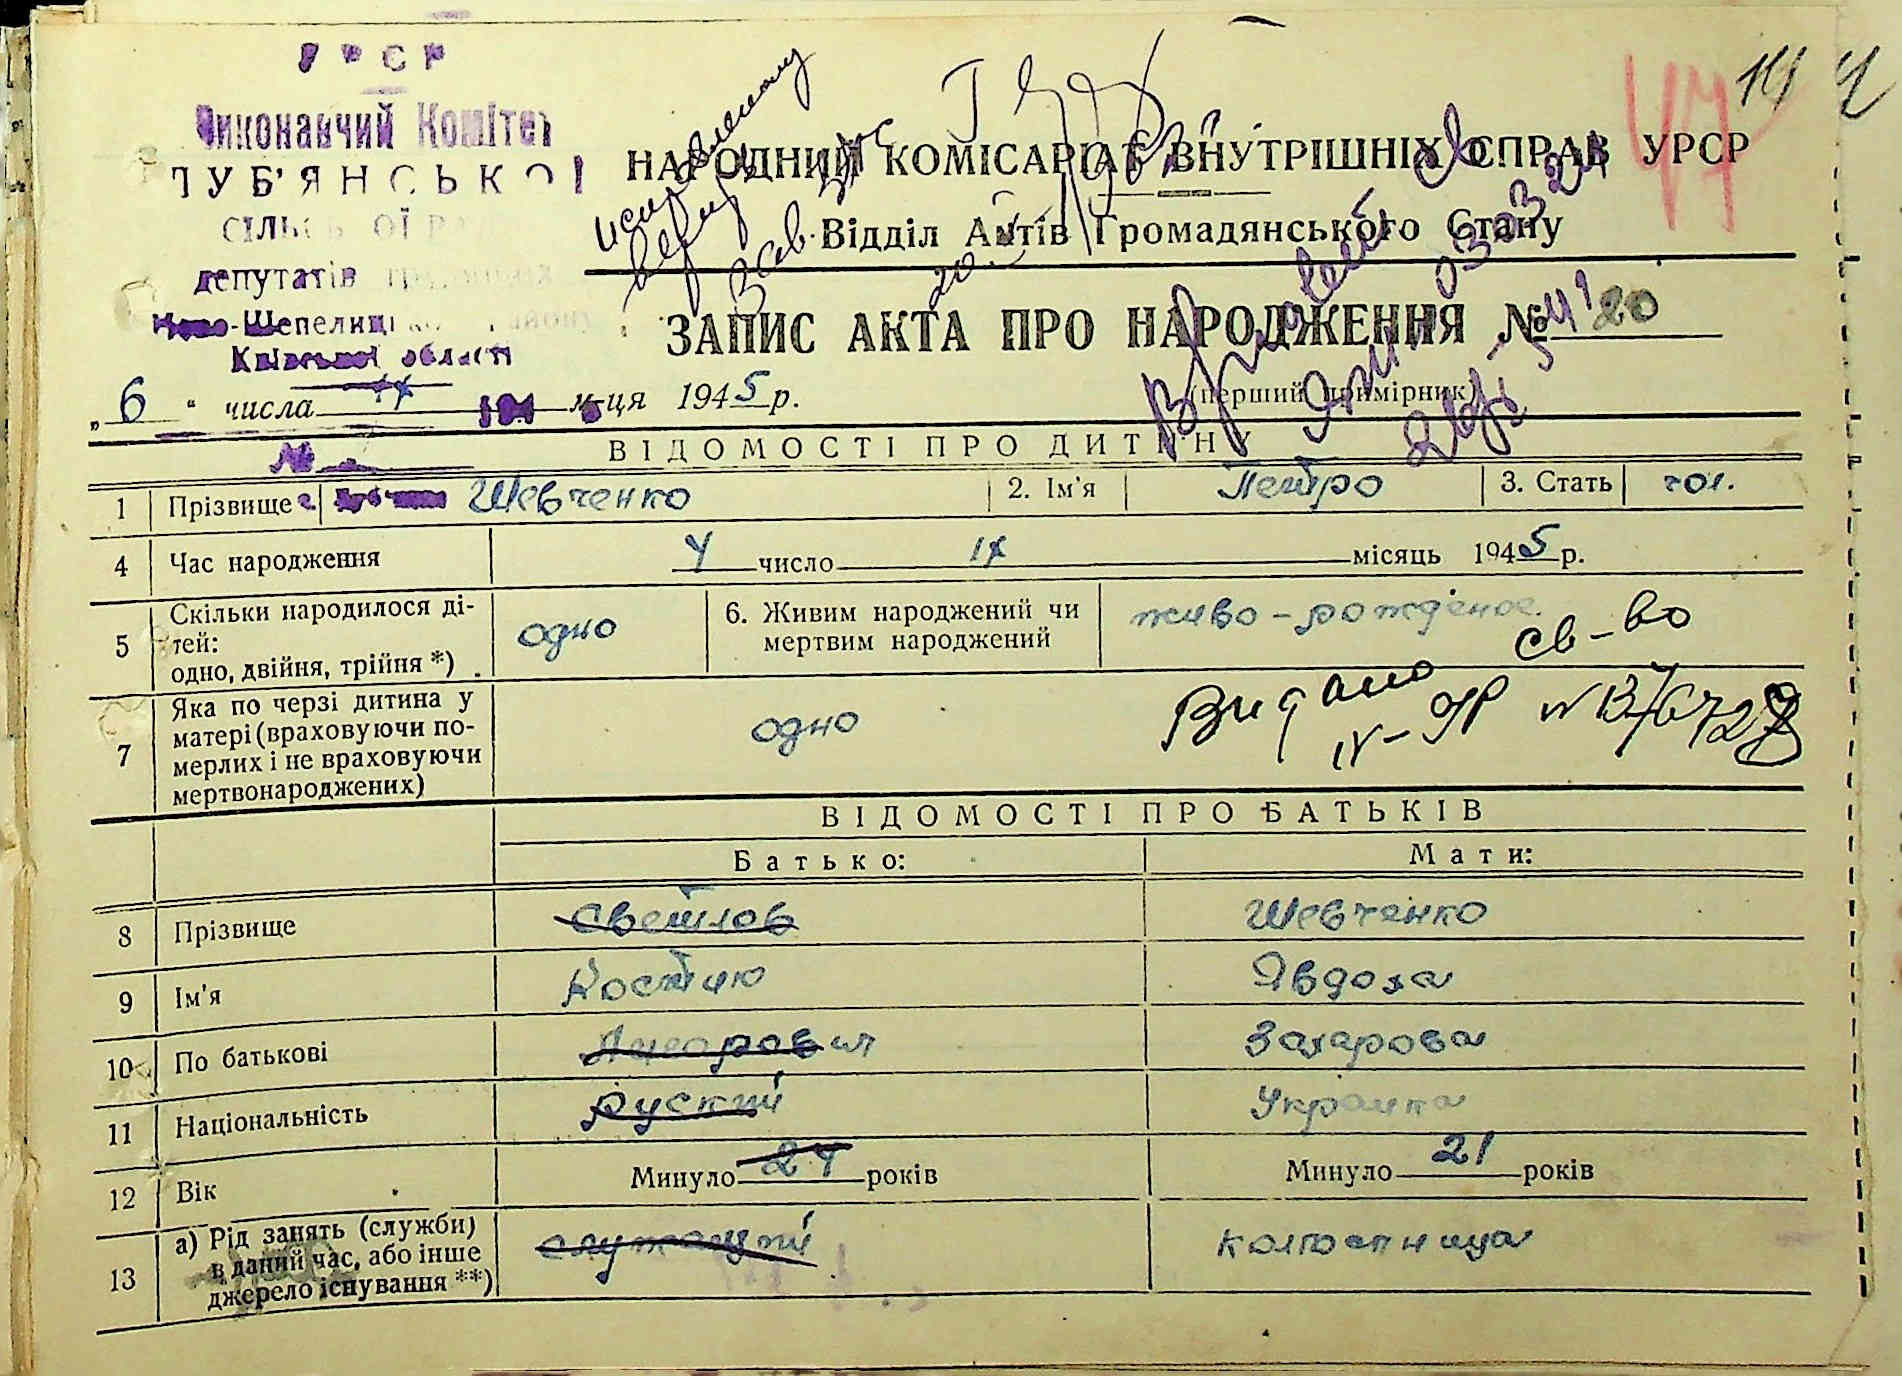 УРСР
Виконавчий Комітет
ЛУБ'ЯНСЬКОЇ
СІЛЬСЬКОЇ РАДИ
депутатів трудящих
Ново-Шепелицького району
Київської області
НАРОДНИЙ КОМІСАРІАТ ВНУТРІШНІХ СПРАВ УРСР
Відділ Актів Громадянського Стану
ЗАПИС АКТА ПРО НАРОДЖЕННЯ № 20
(перший примірник)
„6“ числа IX м-ця 1945 р.
ВІДОМОСТІ ПРО ДИТИНУ
1 Прізвище Шевченко 2. Ім'я Петро 3. Стать чол.
4 Час народження 4 число IX місяць 1945 р.
5 Скільки народилося ді-
тей:
одно, двійня, трійня *) одно
6. Живим народжений чи
мертвим народжений живо-рожденое
7 Яка по черзі дитина у
матері (враховуючи по-
мерлих і не враховуючи
мертвонароджених) одно
Видано св-во
ВІДОМОСТІ ПРО БАТЬКІВ
Батько: Мати:
8 Прізвище Светлов Шевченко
9 Ім'я Явдоха
10 По батькові Захарова
11 Національність Руский Украинка
12 Вік Минуло 24 років Минуло 21 років
13 а) Рід занять (служби)
в даний час, або інше
джерело існування **) служащий колгоспница